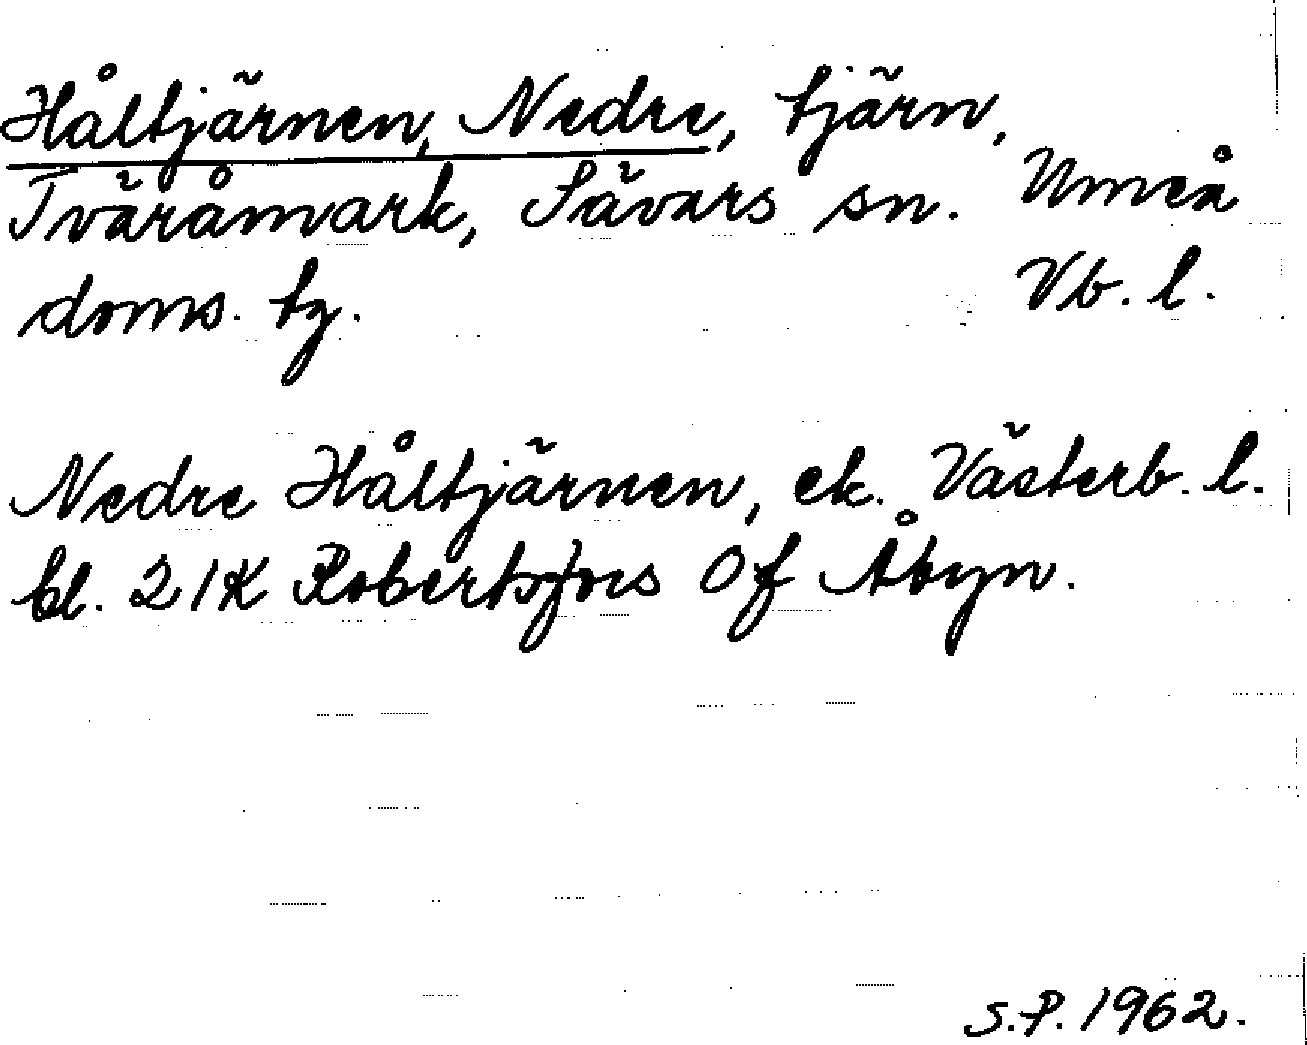 Håltjärnen, Nedre, tjärn,
Tväråmark, Sävars sn. Umeå
doms. tg. Vb. l.
Nedre Håltjärnen, ek. Västerb. l.
bl. 21K Robertsfors Of Åbyn.
S.P. 1962.